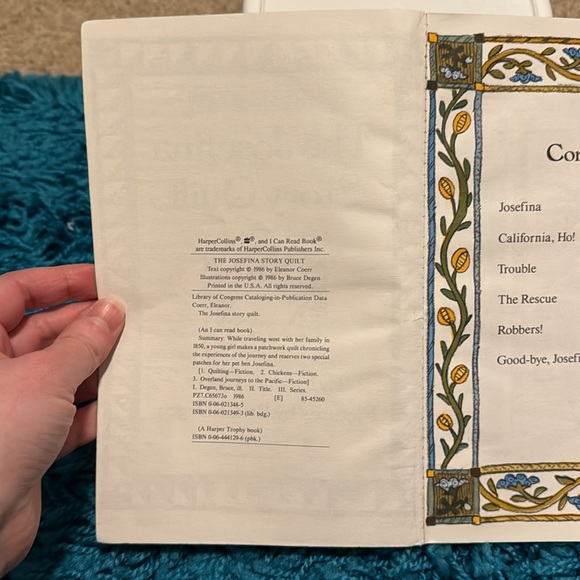 HarperCollins®, ®, and I Can Read Book®
are trademarks of HarperCollins Publishers Inc.
THE JOSEFINA STORY QUILT
Text copyright © 1986 by Eleanor Coerr
Illustrations copyright © 1986 by Bruce Degen
Printed in the U.S.A. All rights reserved.
Library of Congress Cataloging-in-Publication Data
Coerr, Eleanor.
The Josefina story quilt.
(An I can read book)
Summary: While traveling west with her family in
1850, a young girl makes a patchwork quilt chronicling
the experiences of the journey and reserves two special
patches for her pet hen Josefina.
[1. Quilting—Fiction. 2. Chickens—Fiction.
3. Overland journeys to the Pacific—Fiction]
I. Degen, Bruce, ill. II. Title. III. Series.
PZ7.C6567Jo 1986 [E] 85-45260
ISBN 0-06-021348-5
ISBN 0-06-021349-3 (lib. bdg.)
(A Harper Trophy book)
ISBN 0-06-444129-6 (pbk.)
Con
Josefina
California, Ho!
Trouble
The Rescue
Robbers!
Good-bye, Josefi